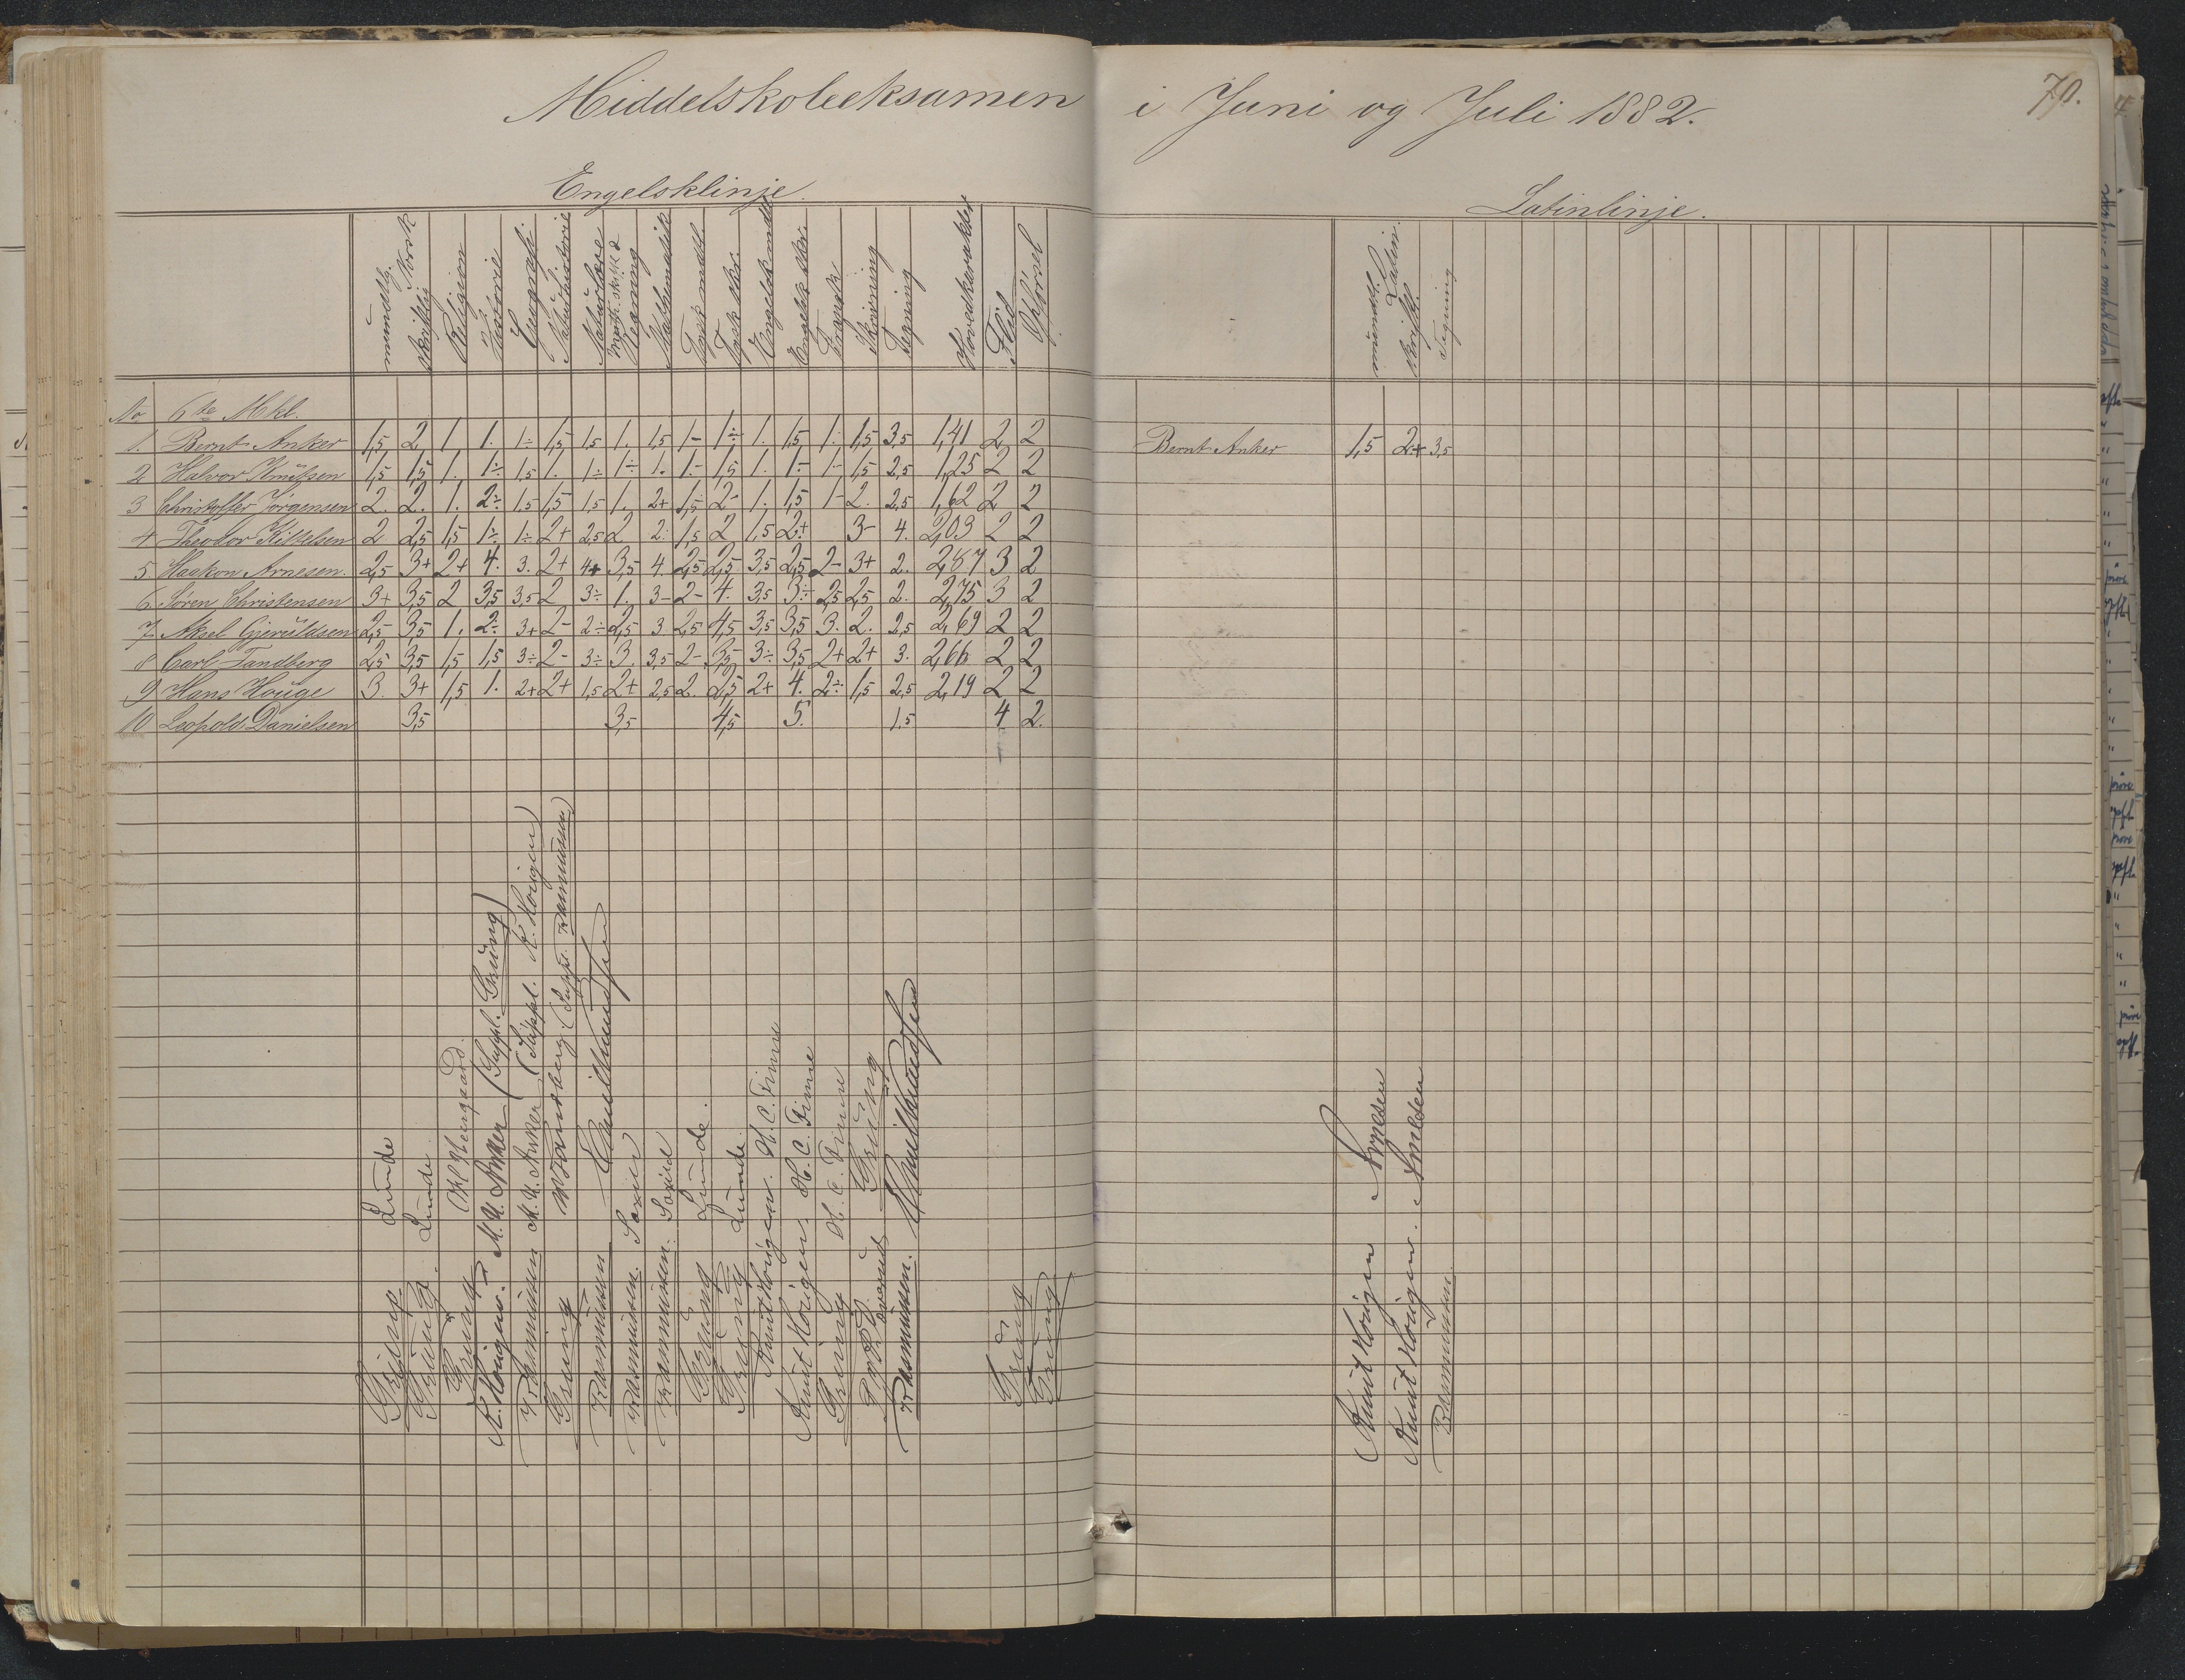 Middelskoleeksamen i Juni og Juli 1882.
70.
Engelsklinje.
Latinlinje.
mundtlig Norsk
skriftlig
Religion
Historie
Geografi
Naturhistorie
Naturlære
Math. skriftl.
Regning
Mathematik
Tysk mdtl.
Tysk skr.
Engelsk mdtl.
Engelsk skr.
Fransk
Skrivning
Tegning
Hovedkarakter
Flid
Opførsel
mundtl. Latin.
skriftl.
Tegning
No 6te Mkl.
1. Bernt Anker 1,5 2 1 1. 1÷ 1,5 1,5 1. 1,5 1- 1÷ 1. 1,5 1. 1,5 3,5 1,41 2 2
2 Halvor Knutsen 1,5 1,5 1. 1÷ 1,5 1. 1÷ 1÷ 1. 1.- 1,5 1. 1.- 1- 1,5 2,5 1,25 2 2
3 Christoffer Jørgensen 2. 2. 1. 2÷ 1.5 1,5 1,5 1. 2+ 1,5 2- 1. 1,5 1- 2. 2,5 1,62 2 2
4 Theodor Kittelsen 2 2,5 1,5 1÷ 1÷ 2+ 2,5 2 2. 1,5 2 1,5 2+ 3- 4. 2,03 2 2
5. Haakon Arnesen. 2,5 3+ 2+ 4. 3. 2+ 4+ 3,5 4 2,5 2,5 3,5 2,5 2- 3+ 2. 2,87 3 2
6. Søren Christensen 3+ 3,5 2 3,5 3,5 2 3÷ 1. 3- 2- 4. 3,5 3÷ 2,5 2,5 2. 2,75 3 2
7. Aksel Gjeruldsen 2,5 3,5 1. 2÷ 3+ 2- 2÷ 2,5 3 2,5 4,5 3,5 3,5 3. 2. 2,5 2,69 2 2
8 Carl Tandberg 2,5 3,5 1,5 1,5 3÷ 2- 3÷ 3. 3,5 2- 3,5 3÷ 3,5 2+ 2+ 3. 2,66 2 2
9 Hans Houge 3. 3+ 1,5 1. 2+ 2+ 1,5 2+ 2,5 2. 2,5 2+ 4. 2÷ 1,5 2,5 2,19 2 2
10 Leopold Danielsen 3,5 3,5 4,5 5. 1.5 4 2.
Bernt Anker 1,5 2+ 3,5
Grüng. Lunde
Grüng. Lunde.
Grüng
K. Horigen. M. U. Anker (Suppl. Grüng)
Rasmussen M. U. Anker (Suppl. K. Horigen)
Grüng (Suppl. Rasmussen)
Rasmussen
Rasmussen. Saxild
Rasmussen. Saxild
Grüng Lunde.
Grüng Lunde.
Knut Horigen. H. C. Finne
Knut Horigen H. C. Finne
Grüng H. C. Finne
Grüng
Rasmussen.
Grüng
Grüng
Knut Horigen
Knut Horigen.
Rasmussen.